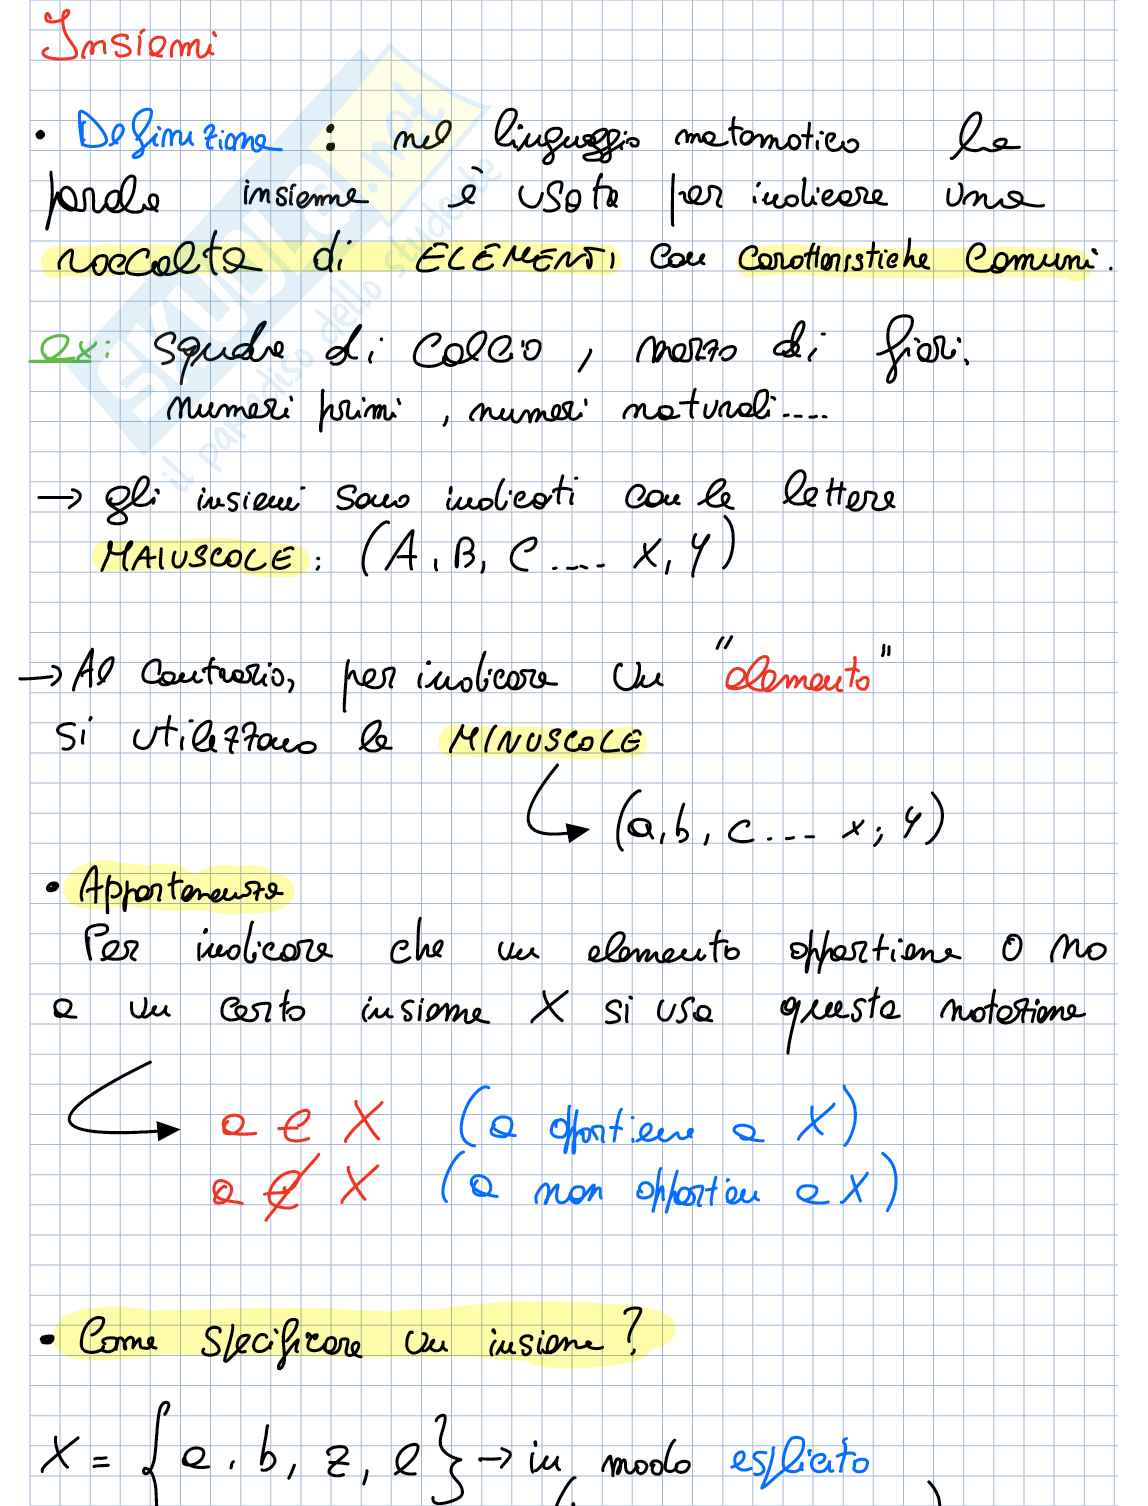 Insiemi
• Definizione : nel linguaggio matematico la
parola insieme è usata per indicare una
raccolta di ELEMENTI con caratteristiche comuni.
ex: squadre di calcio, mazzo di fiori,
numeri primi, numeri naturali....
→ gli insiemi sono indicati con le lettere
MAIUSCOLE: (A, B, C .... X, Y)
→ Al contrario, per indicare un "elemento"
si utilizzano le MINUSCOLE
(a, b, c .... x; y)
• Appartenenza
Per indicare che un elemento appartiene o no
a un certo insieme X si usa questa notazione
a ∈ X (a appartiene a X)
a ∉ X (a non appartien a X)
• Come specificare un insieme?
X = {a, b, z, l} → in modo esplicito
SKUOLA.net
il paradiso dello studente